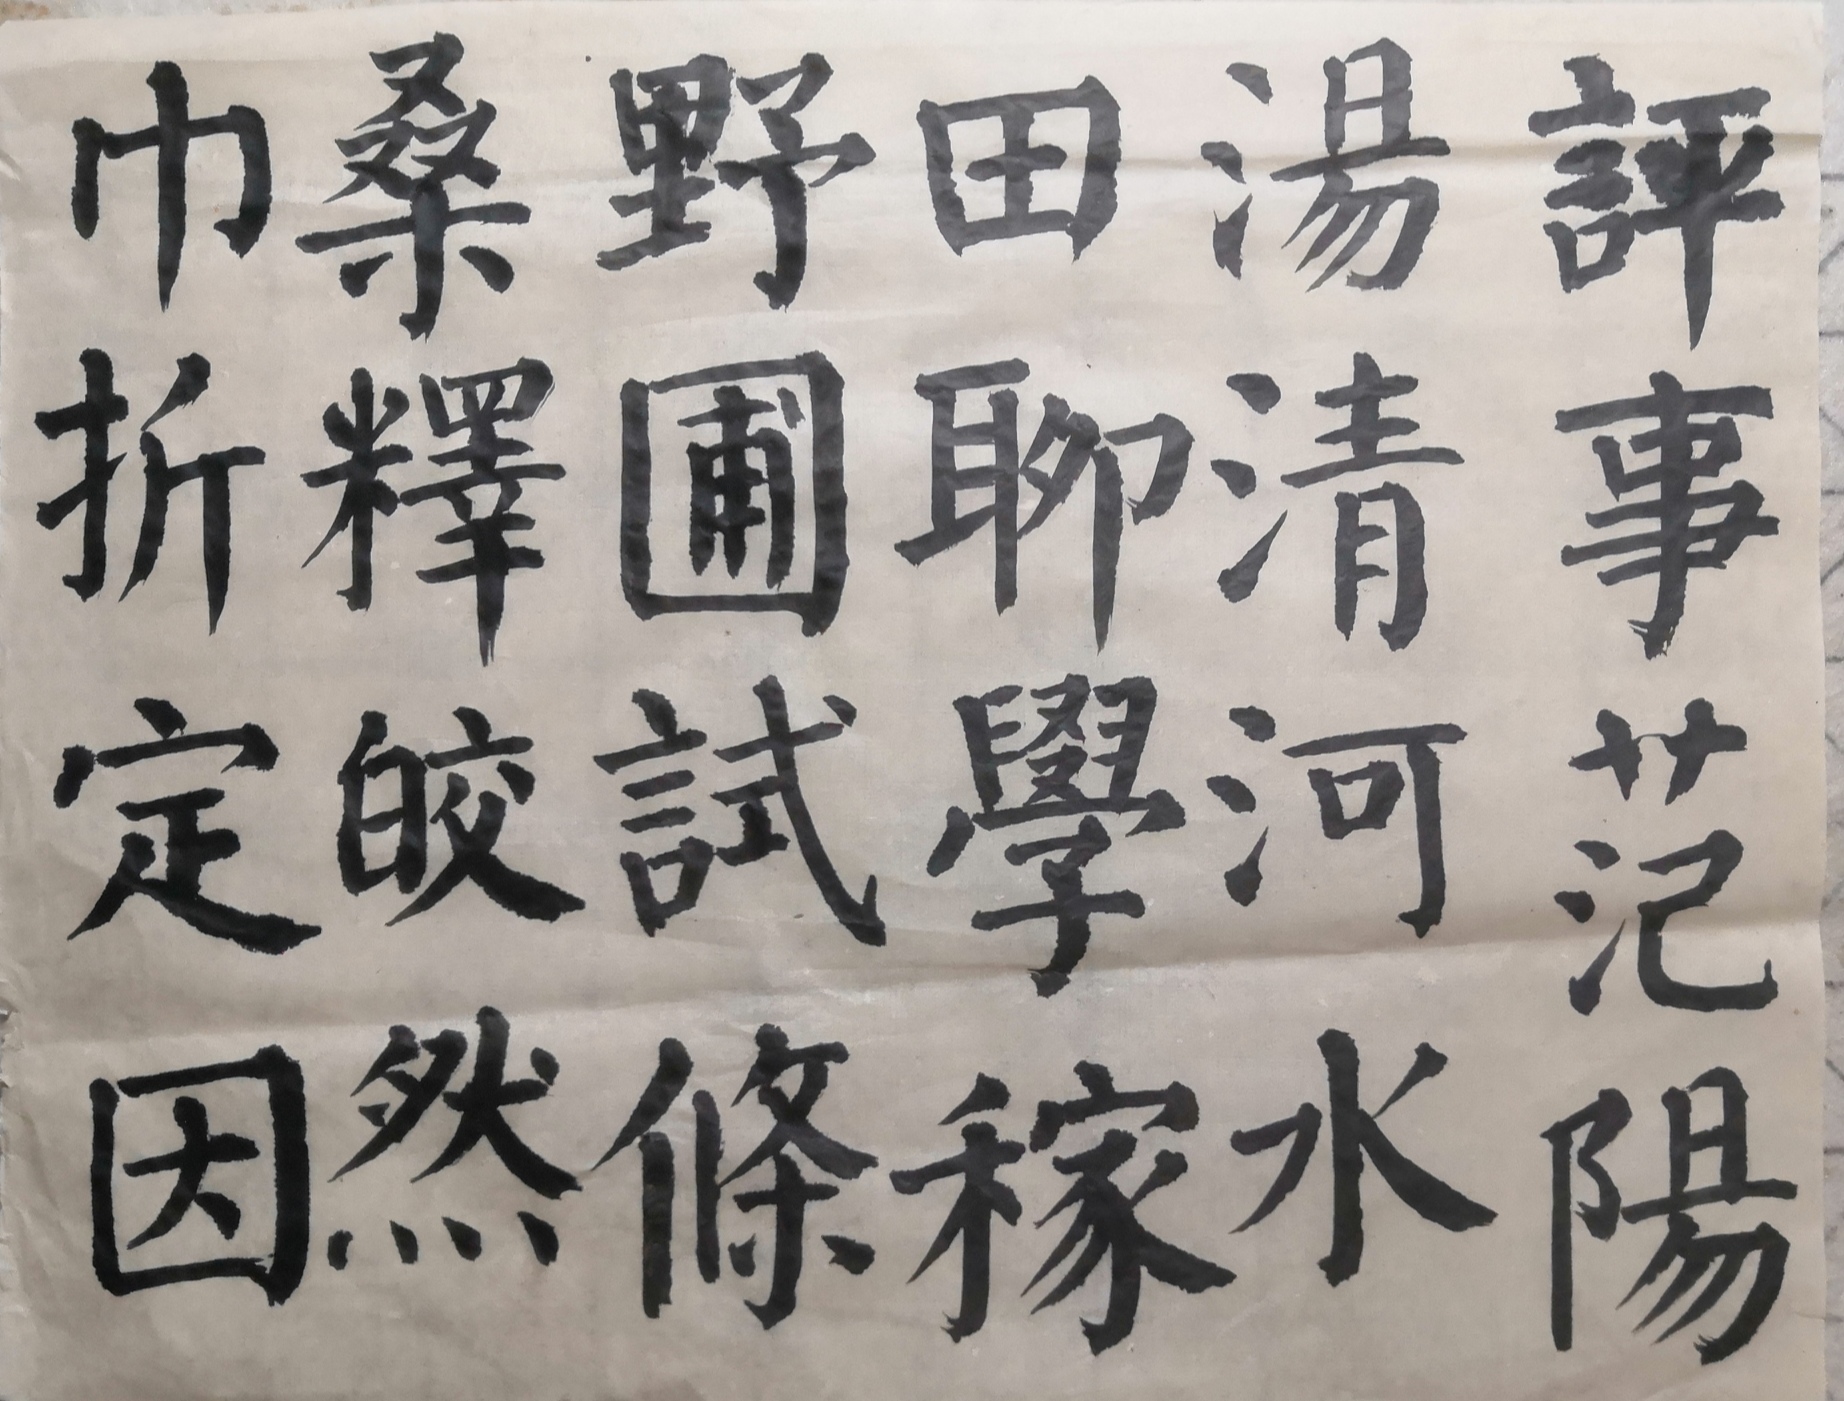 評事范陽
湯清河水
田聊學稼
野圃試條
桑釋皎然
巾折定因